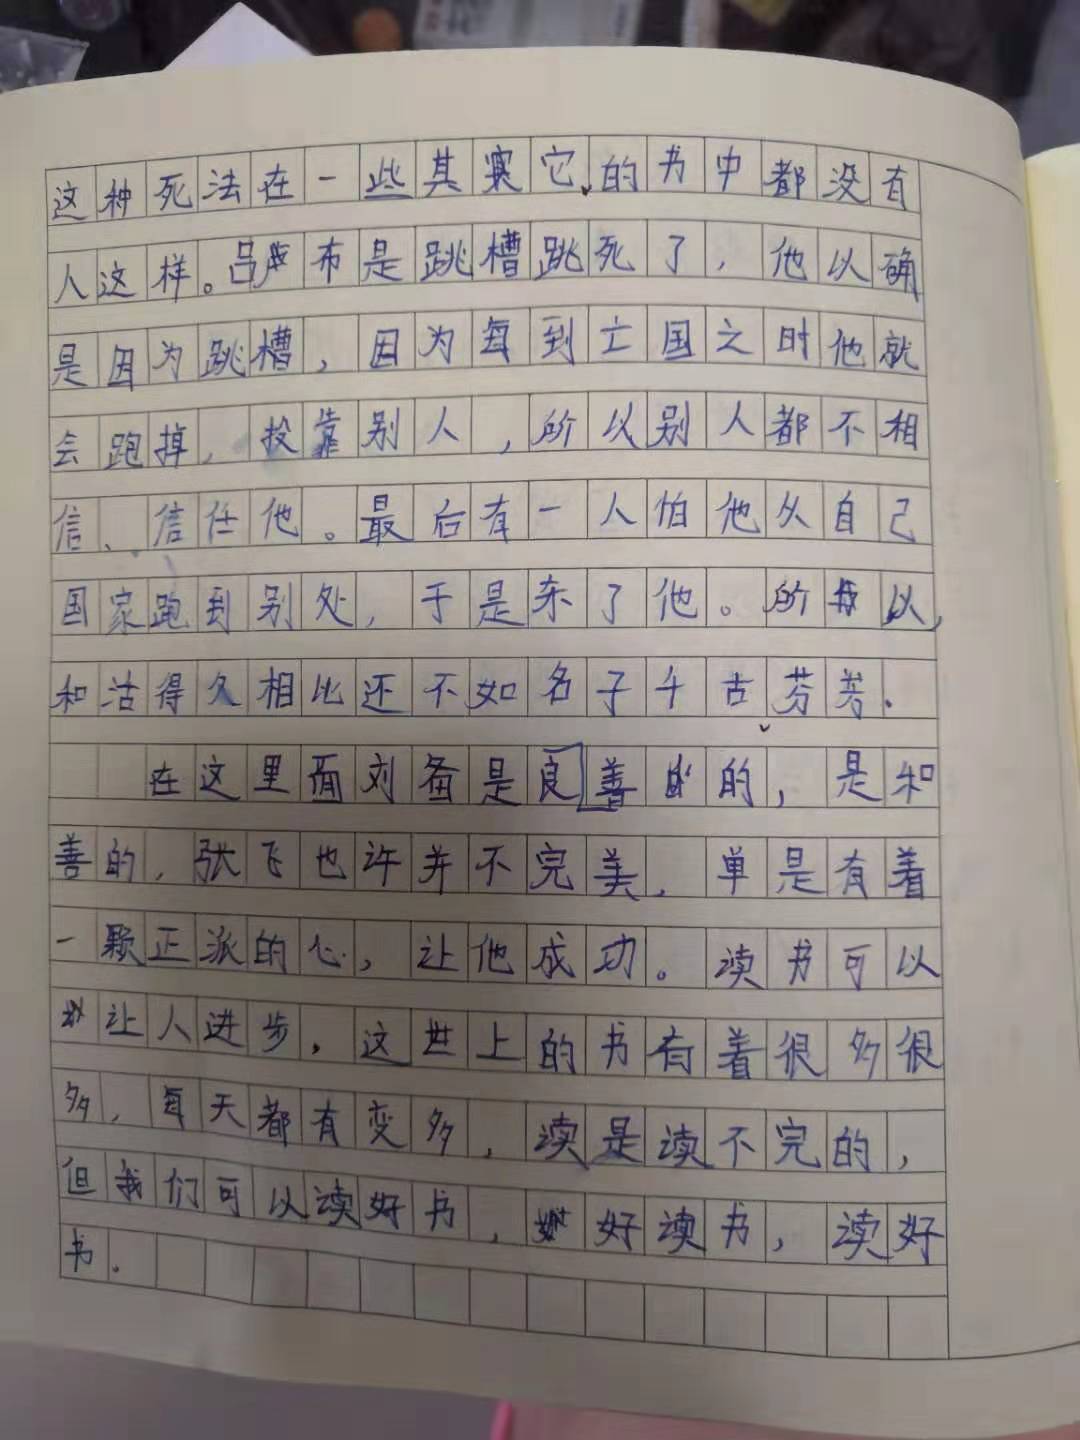 这种死法在一些其实它的书中都没有
人这样。吕布是跳槽跳死了，他以确
是因为跳槽，因为每到亡国之时他就
会跑掉，投靠别人，所以别人都不相
信、信任他。最后有一人怕他从自己
国家跑到别处，于是杀了他。所以，
和活得久相比还不如名子千古芬芳.
在这里面刘备是良善的，是和
善的，张飞也许并不完美，单是有着
一颗正派的心，让他成功。读书可以
让人进步，这世上的书有着很多很
多，每天都有变多，读是读不完的，
但我们可以读好书，好读书，读好
书.